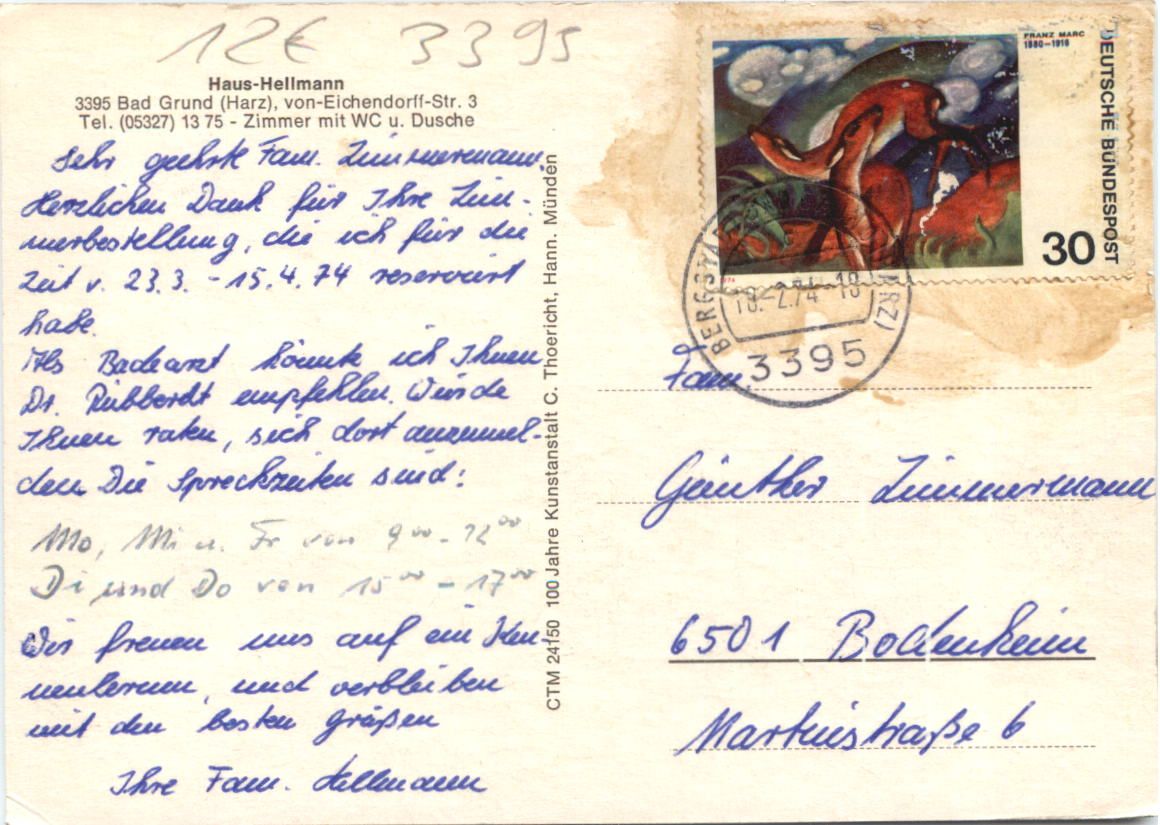 12€ 3395
Haus-Hellmann
3395 Bad Grund (Harz), von-Eichendorff-Str. 3
Tel. (05327) 13 75 - Zimmer mit WC u. Dusche
Sehr geehrte Fam. Zimmermann.
Herzlichen Dank für Ihre Zim-
merbestellung, die ich für die
Zeit v. 23.3. - 15.4.74 reserviert
habe.
Als Badearzt könnte ich Ihnen
Dr. Rübberdt empfehlen. Würde
Ihnen raten, sich dort anzumel-
den. Die Sprechzeiten sind:
Mo, Mi u. Fr von 9⁰⁰ - 12⁰⁰
Di und Do von 15⁰⁰ - 17⁰⁰
Wir freuen uns auf ein Ken-
nenlernen, und verbleiben
mit den besten Grüßen
Ihre Fam. Hellmann
CTM 24150 100 Jahre Kunstanstalt C. Thoericht, Hann. Münden
FRANZ MARC
1880-1916
DEUTSCHE BUNDESPOST
30
18.-2.74-18
3395
Fam.
Günther Zimmermann
6501 Bodenheim
Martinstraße 6